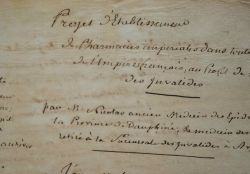 Projet d'Etablissement
de Pharmacies impériales dans toute
de l'Empire français, au Profit de
des Invalides
par M. Nicolas ancien Médecin des Epidé
la Province de Dauphiné, de médecin des
retiré à la Succursale des Invalides à